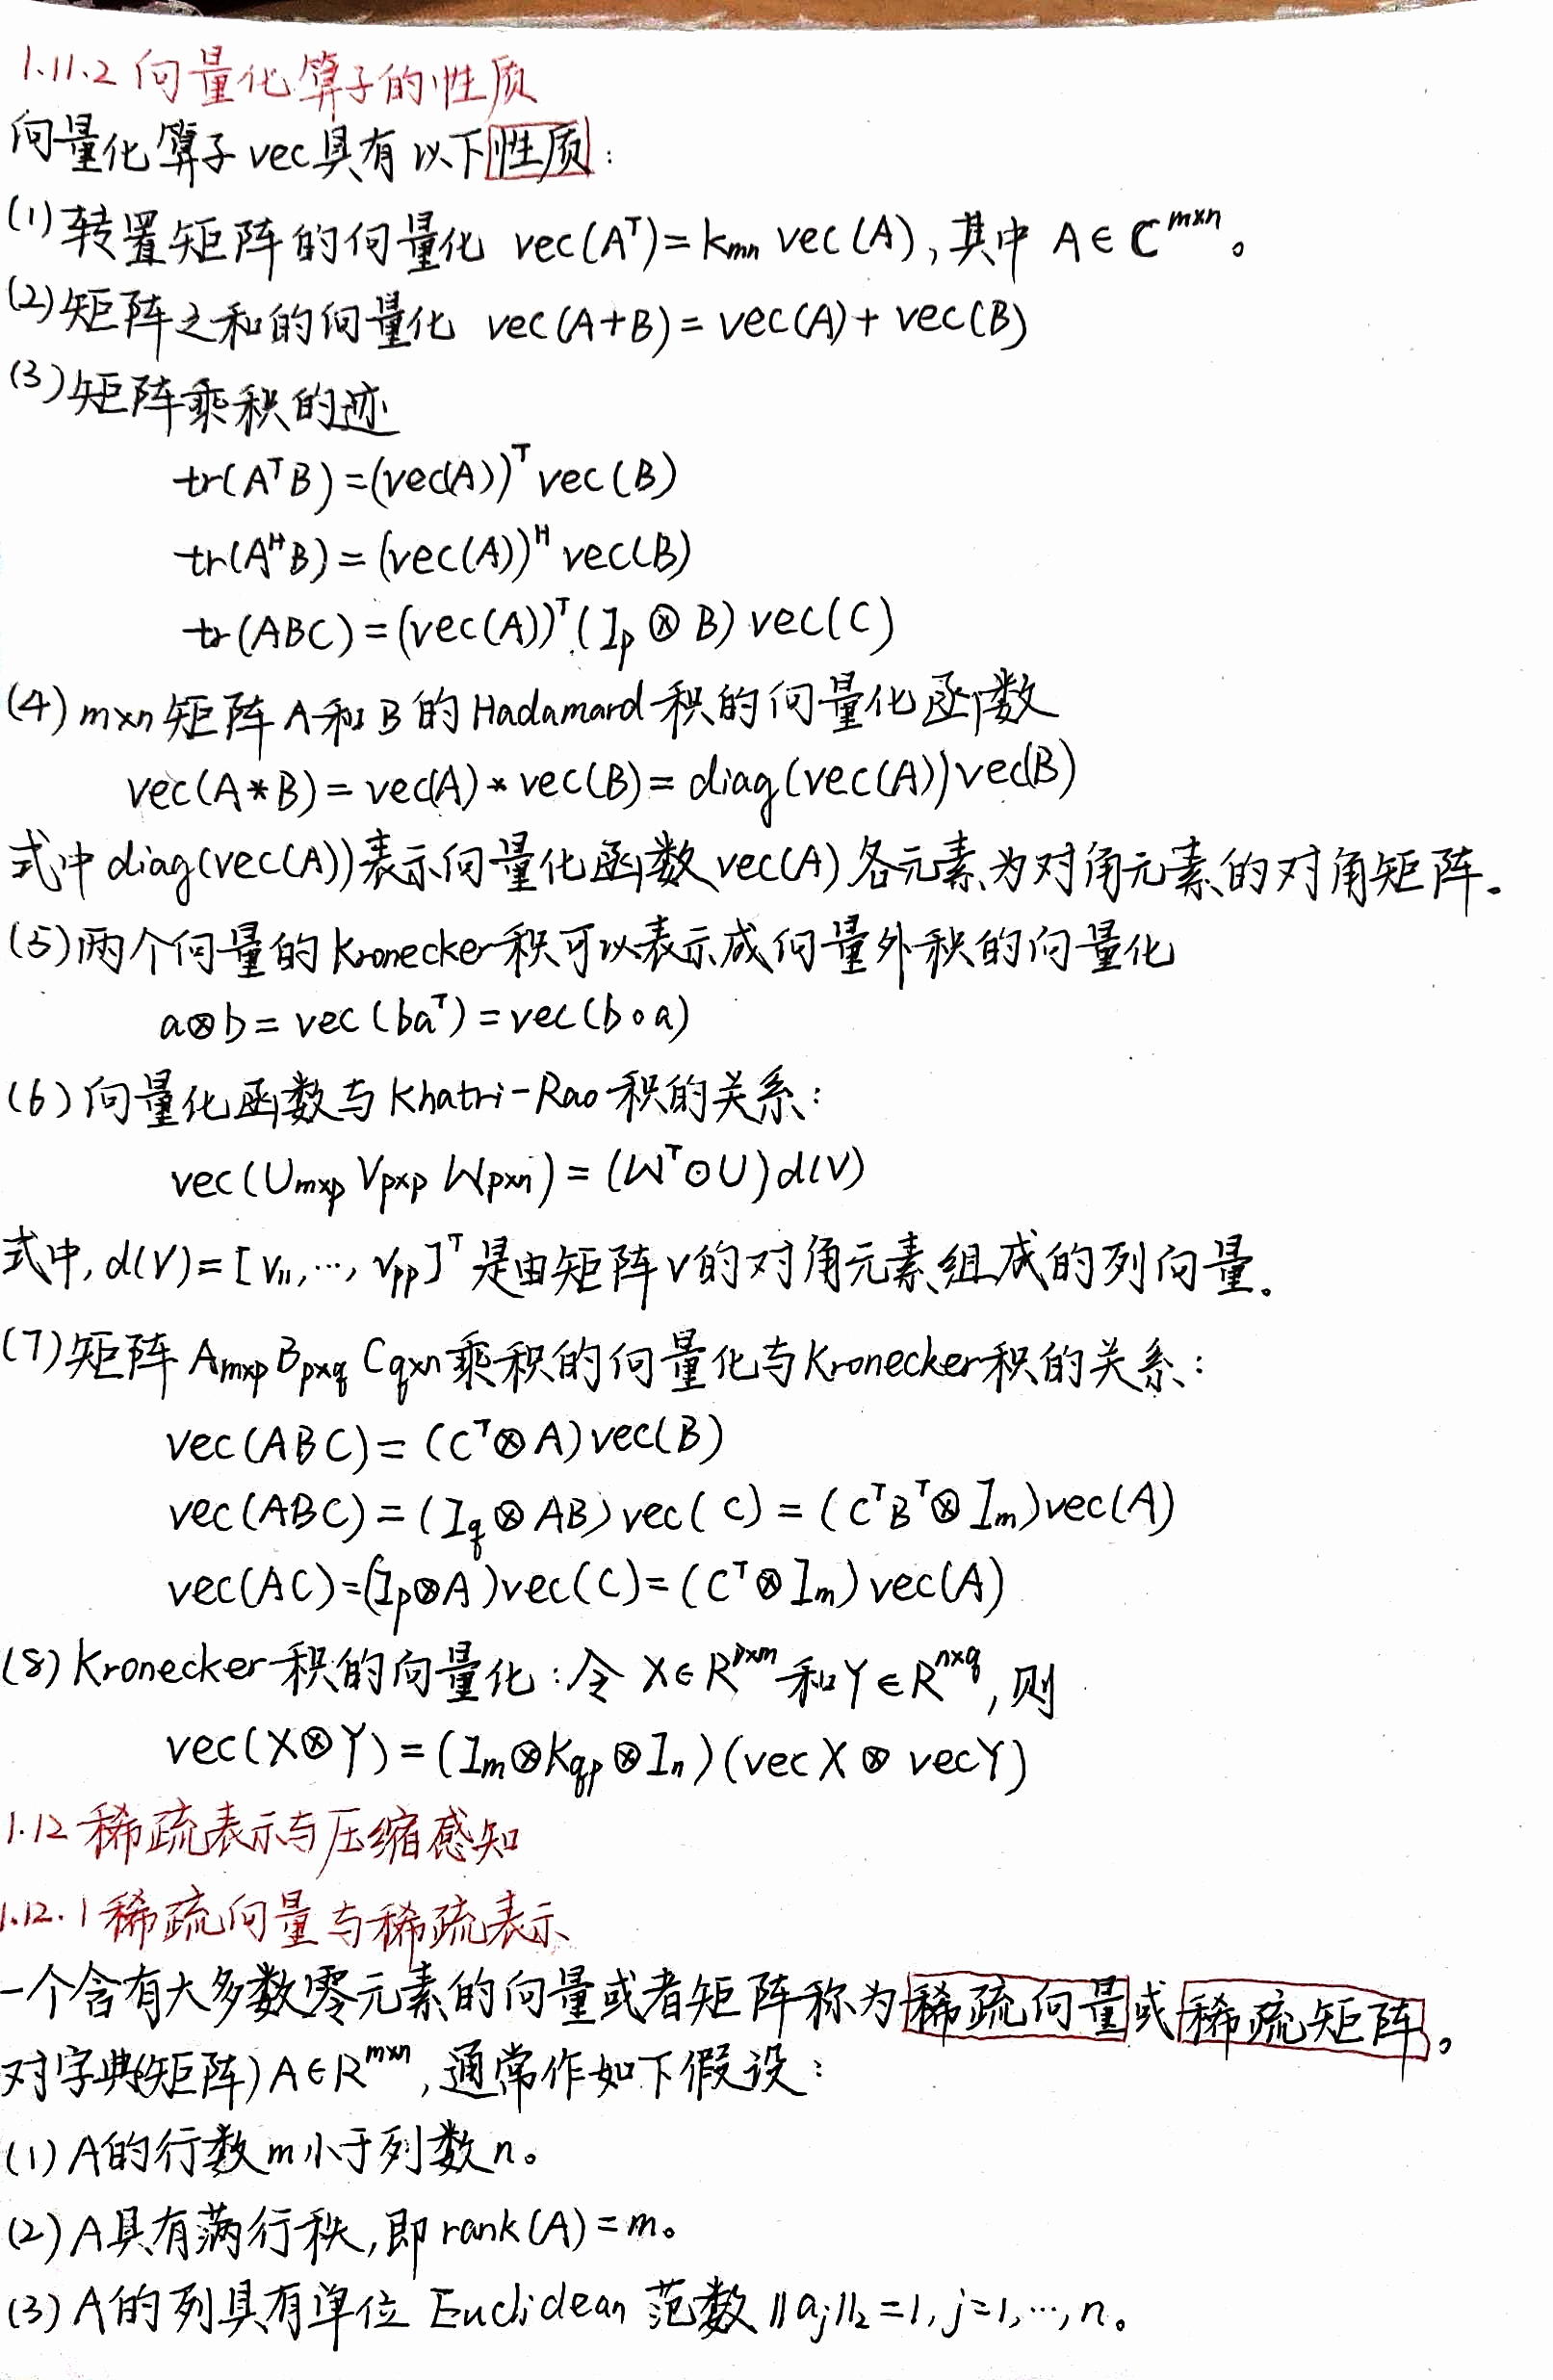 1.11.2 向量化算子的性质
向量化算子vec具有以下性质:
(1)转置矩阵的向量化 vec(Aᵀ)=kₘₙ vec(A),其中 A∈ℂ^{m×n}。
(2)矩阵之和的向量化 vec(A+B)=vec(A)+vec(B)
(3)矩阵乘积的迹
tr(AᵀB)=(vec(A))ᵀvec(B)
tr(A^H B)=(vec(A))^H vec(B)
tr(ABC)=(vec(A))ᵀ(I_p⊗B)vec(C)
(4)m×n矩阵A和B的Hadamard积的向量化函数
vec(A*B)=vec(A)*vec(B)=diag(vec(A))vec(B)
式中diag(vec(A))表示向量化函数vec(A)各元素为对角元素的对角矩阵。
(5)两个向量的Kronecker积可以表示成向量外积的向量化
a⊗b=vec(baᵀ)=vec(b∘a)
(6)向量化函数与Khatri-Rao积的关系:
vec(U_{m×p}V_{p×p}W_{p×n})=(Wᵀ⊙U)d(V)
式中,d(V)=[v₁₁,…,v_{pp}]ᵀ是由矩阵V的对角元素组成的列向量。
(7)矩阵A_{m×p}B_{p×q}C_{q×n}乘积的向量化与Kronecker积的关系:
vec(ABC)=(Cᵀ⊗A)vec(B)
vec(ABC)=(I_q⊗AB)vec(C)=(CᵀBᵀ⊗I_m)vec(A)
vec(AC)=(I_p⊗A)vec(C)=(Cᵀ⊗I_m)vec(A)
(8)Kronecker积的向量化:令X∈R^{p×m}和Y∈R^{n×q},则
vec(X⊗Y)=(I_m⊗K_{qp}⊗I_n)(vecX⊗vecY)
1.12 稀疏表示与压缩感知
1.12.1稀疏向量与稀疏表示
一个含有大多数零元素的向量或者矩阵称为稀疏向量或稀疏矩阵。
对字典(矩阵)A∈R^{m×n},通常作如下假设:
(1)A的行数m小于列数n。
(2)A具有满行秩,即rank(A)=m。
(3)A的列具有单位Euclidean范数‖a_j‖₂=1,j=1,…,n。